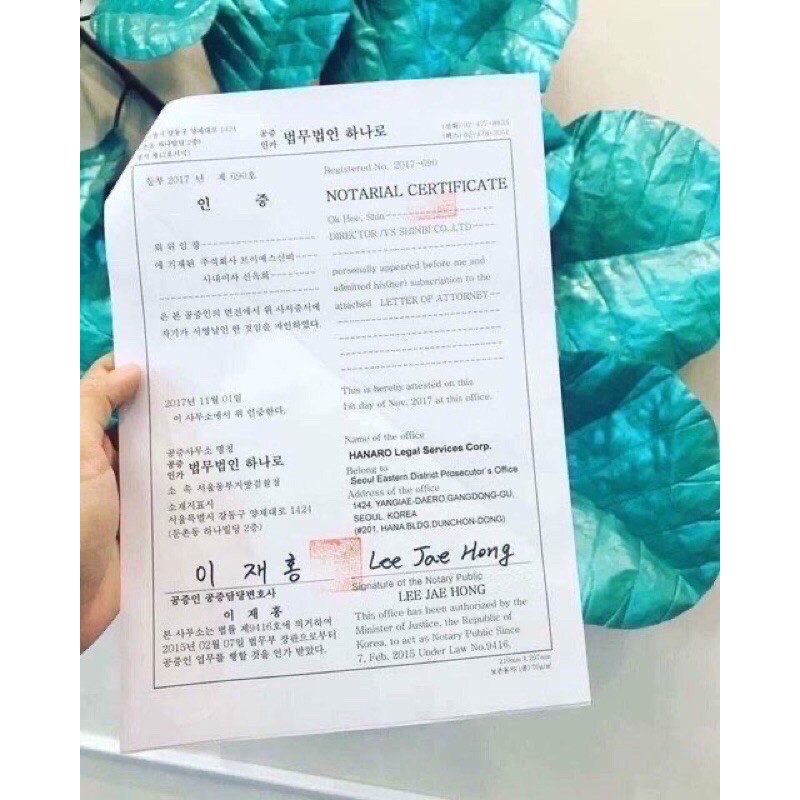 강동구 양재대로 1424
공증
인가 법무법인 하나로
등부 2017 년 제 690호
Registered No. 2017-690
인 증
NOTARIAL CERTIFICATE
Ok Hee, Shin
DIRECTOR /VS SHINBI CO.,LTD
위 위임장
에 기재된 주식회사 브이에스신비
사내이사 신옥희
personally appeared before me and
admitted his(her) subscription to the
attached LETTER OF ATTORNEY
은 본 공증인의 면전에서 위 사서증서에
자기가 서명날인 한 것임을 자인하였다.
2017년 11월 01일
이 사무소에서 위 인증한다.
This is hereby attested on this
1st day of Nov, 2017 at this office.
공증사무소 명칭
공증
인가 법무법인 하나로
소 속 서울동부지방검찰청
소재지표시
서울특별시 강동구 양재대로 1424
(둔촌동 하나빌딩 2층)
Name of the office
HANARO Legal Services Corp.
Belong to
Seoul Eastern District Prosecutor's Office
Address of the office
1424, YANGJAE-DAERO,GANGDONG-GU,
SEOUL, KOREA
(#201, HANA BLDG.DUNCHON-DONG)
이 재 홍
Lee Jae Hong
공증인 공증담당변호사
이 재 홍
Signature of the Notary Public
LEE JAE HONG
본 사무소는 법률 제9416호에 의거하여
2015년 02월 07일 법무부 장관으로부터
공증인 업무를 행할 것을 인가 받았다.
This office has been authorized by the
Minister of Justice, the Republic of
Korea, to act as Notary Public Since
7, Feb. 2015 Under Law No.9416.
210mm X 297mm